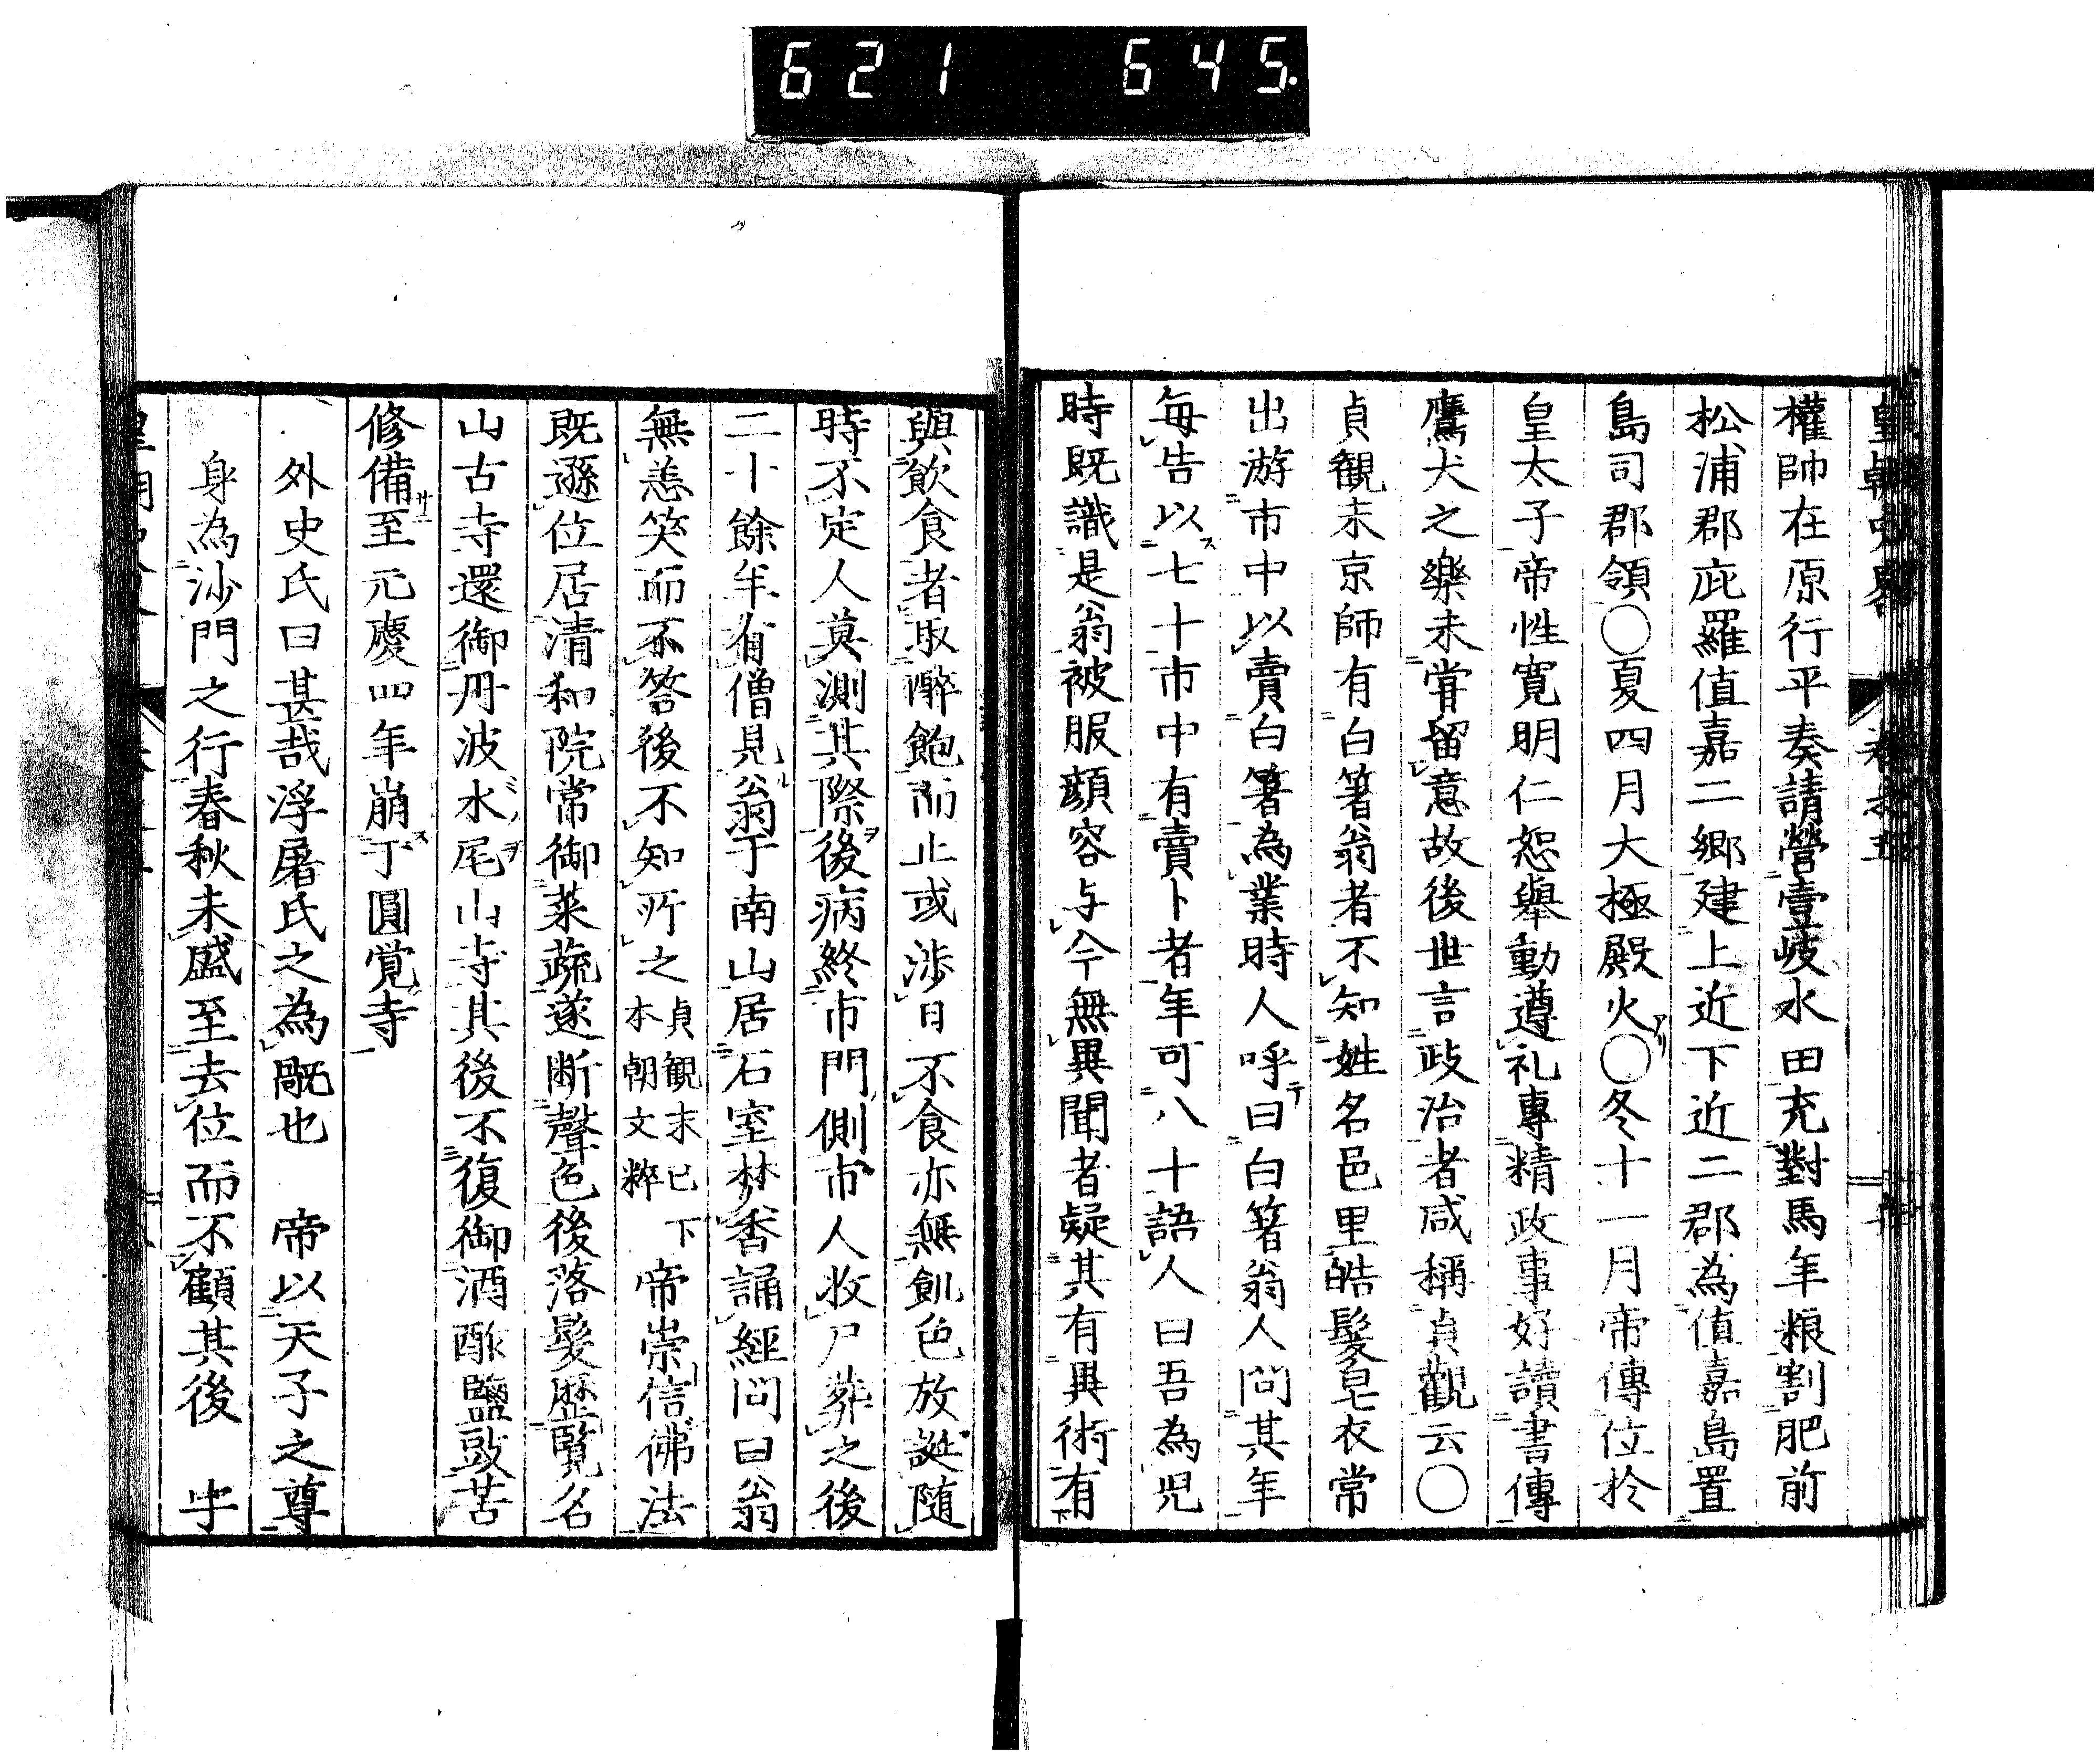 621 645.
權帥在原行平奏請營壹岐水田充對馬年粮割肥前
松浦郡庇羅值嘉二鄉建上近下近二郡為值嘉島置
島司郡領〇夏四月大極殿火〇冬十一月帝傳位於
皇太子帝性寬明仁恕舉動遵礼專精政事好讀書傳
鷹犬之樂未甞留意故後世言政治者咸稱貞觀云〇
貞観末京師有白箸翁者不知姓名邑里皓髮皂衣常
出游市中以賣白箸為業時人呼曰白箸翁人問其年
每告以七十市中有賣卜者年可八十語人曰吾為児
時既識是翁被服顔容与今無異聞者疑其有異術有
與飲食者取醉飽而止或涉日不食亦無飢色放誕随
時不定人莫測其際後病終市門側市人收尸葬之後
二十餘年有僧見翁于南山居石室焚香誦經問曰翁
無恙笑而不答後不知所之貞観末已下本朝文粹帝崇信佛法
既遜位居清和院常御菜蔬遂断聲色後落髮歷覧名
山古寺還御丹波水尾山寺其後不復御酒酢鹽豉苦
修備至元慶四年崩于圓覚寺
外史氏曰甚哉浮屠氏之為厩也　帝以天子之尊
身為沙門之行春秋未盛至去位而不顧其後　宇